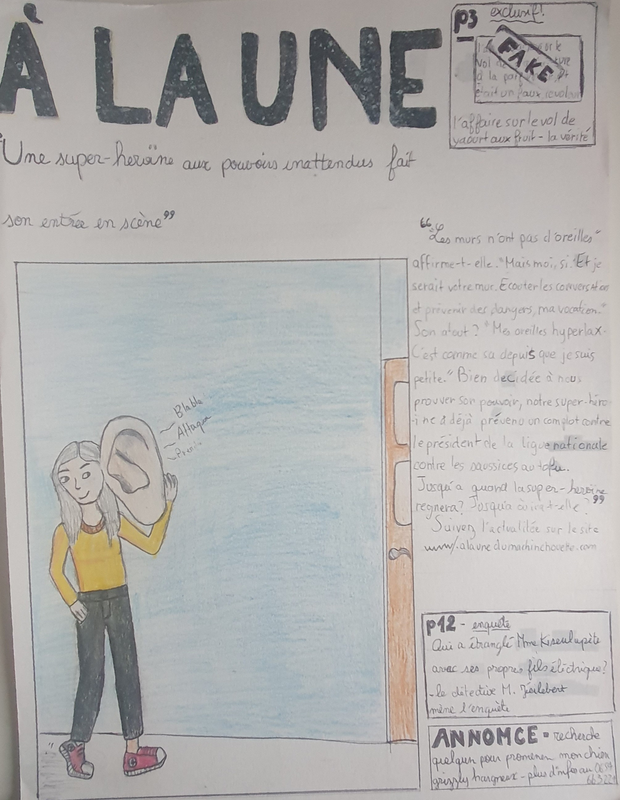 À LA UNE
p3 exclusif!
FAKE
était un faux
l'affaire sur le vol de
yaourt aux fruit - la vérité
"Une super-heroïne aux pouvoirs inattendus fait
son entrée en scène"
"Les murs n'ont pas d'oreilles"
affirme-t-elle. "Mais moi, si. Et je
serait votre mur. Ecouter les conversation
et prévenir des dangers, ma vocation."
Son atout? "Mes oreilles hyperlax-
C'est comme ça depuis que je suis
petite." Bien decidée à nous
prouver son pouvoir, notre super-héro-
ine a déjà prévenu un complot contre
le président de la ligue nationale
contre les saussices au tofu.
Jusqu'a quand la super-heroïne
regnera? Jusqu'à où ira-t-elle?"
Suivez l'actualitée sur le site
www.alaunedumachinchouette.com
Blabla
Attaque
p12 - enquête
Qui a étranglé Mme
avec ses propres fils éléctrique?
- le détective M.
mène l'enquête
ANNOMCE = recherche
quelqun pour promener mon chien
grizzly hargneux - plus d'infos au